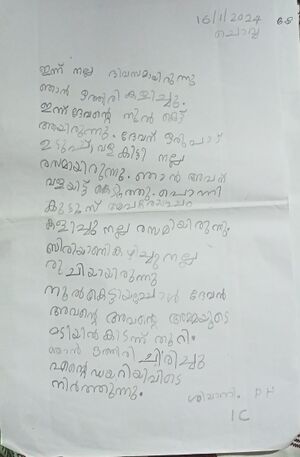 16/1/2024
ചൊവ്വ
ഇന്ന് നല്ല ദിവസമായിരുന്നു
ഞാൻ ഒത്തിരി കളിച്ചു.
ഇന്ന് ദേവന്റെ നൂൽ കെട്ട്
ആയിരുന്നു. ദേവന് ഒരുപാട്
ഉടുപ്പ് വള കിട്ടി നല്ല
രസമായിരുന്നു. ഞാൻ അവന്
വളയിട്ട് കൊടുത്തു. പൊന്നി
കുട്ടൂസ്
കളിച്ചു നല്ല രസമിയിരുന്നു.
ബിരിയാണി കഴിച്ചു നല്ല
രുചിയായിരുന്നു
നൂൽകെട്ടിയപ്പോൾ ദേവൻ
അവന്റെ അവന്റെ അമ്മയുടെ
മടിയിൽ കിടന്ന് തൂറി.
ഞാൻ ഒത്തിരി ചിരിച്ചു
എന്റെ ഡയറിയിവിടെ
നിർത്തുന്നു.
ശിവാനി. P H
I C